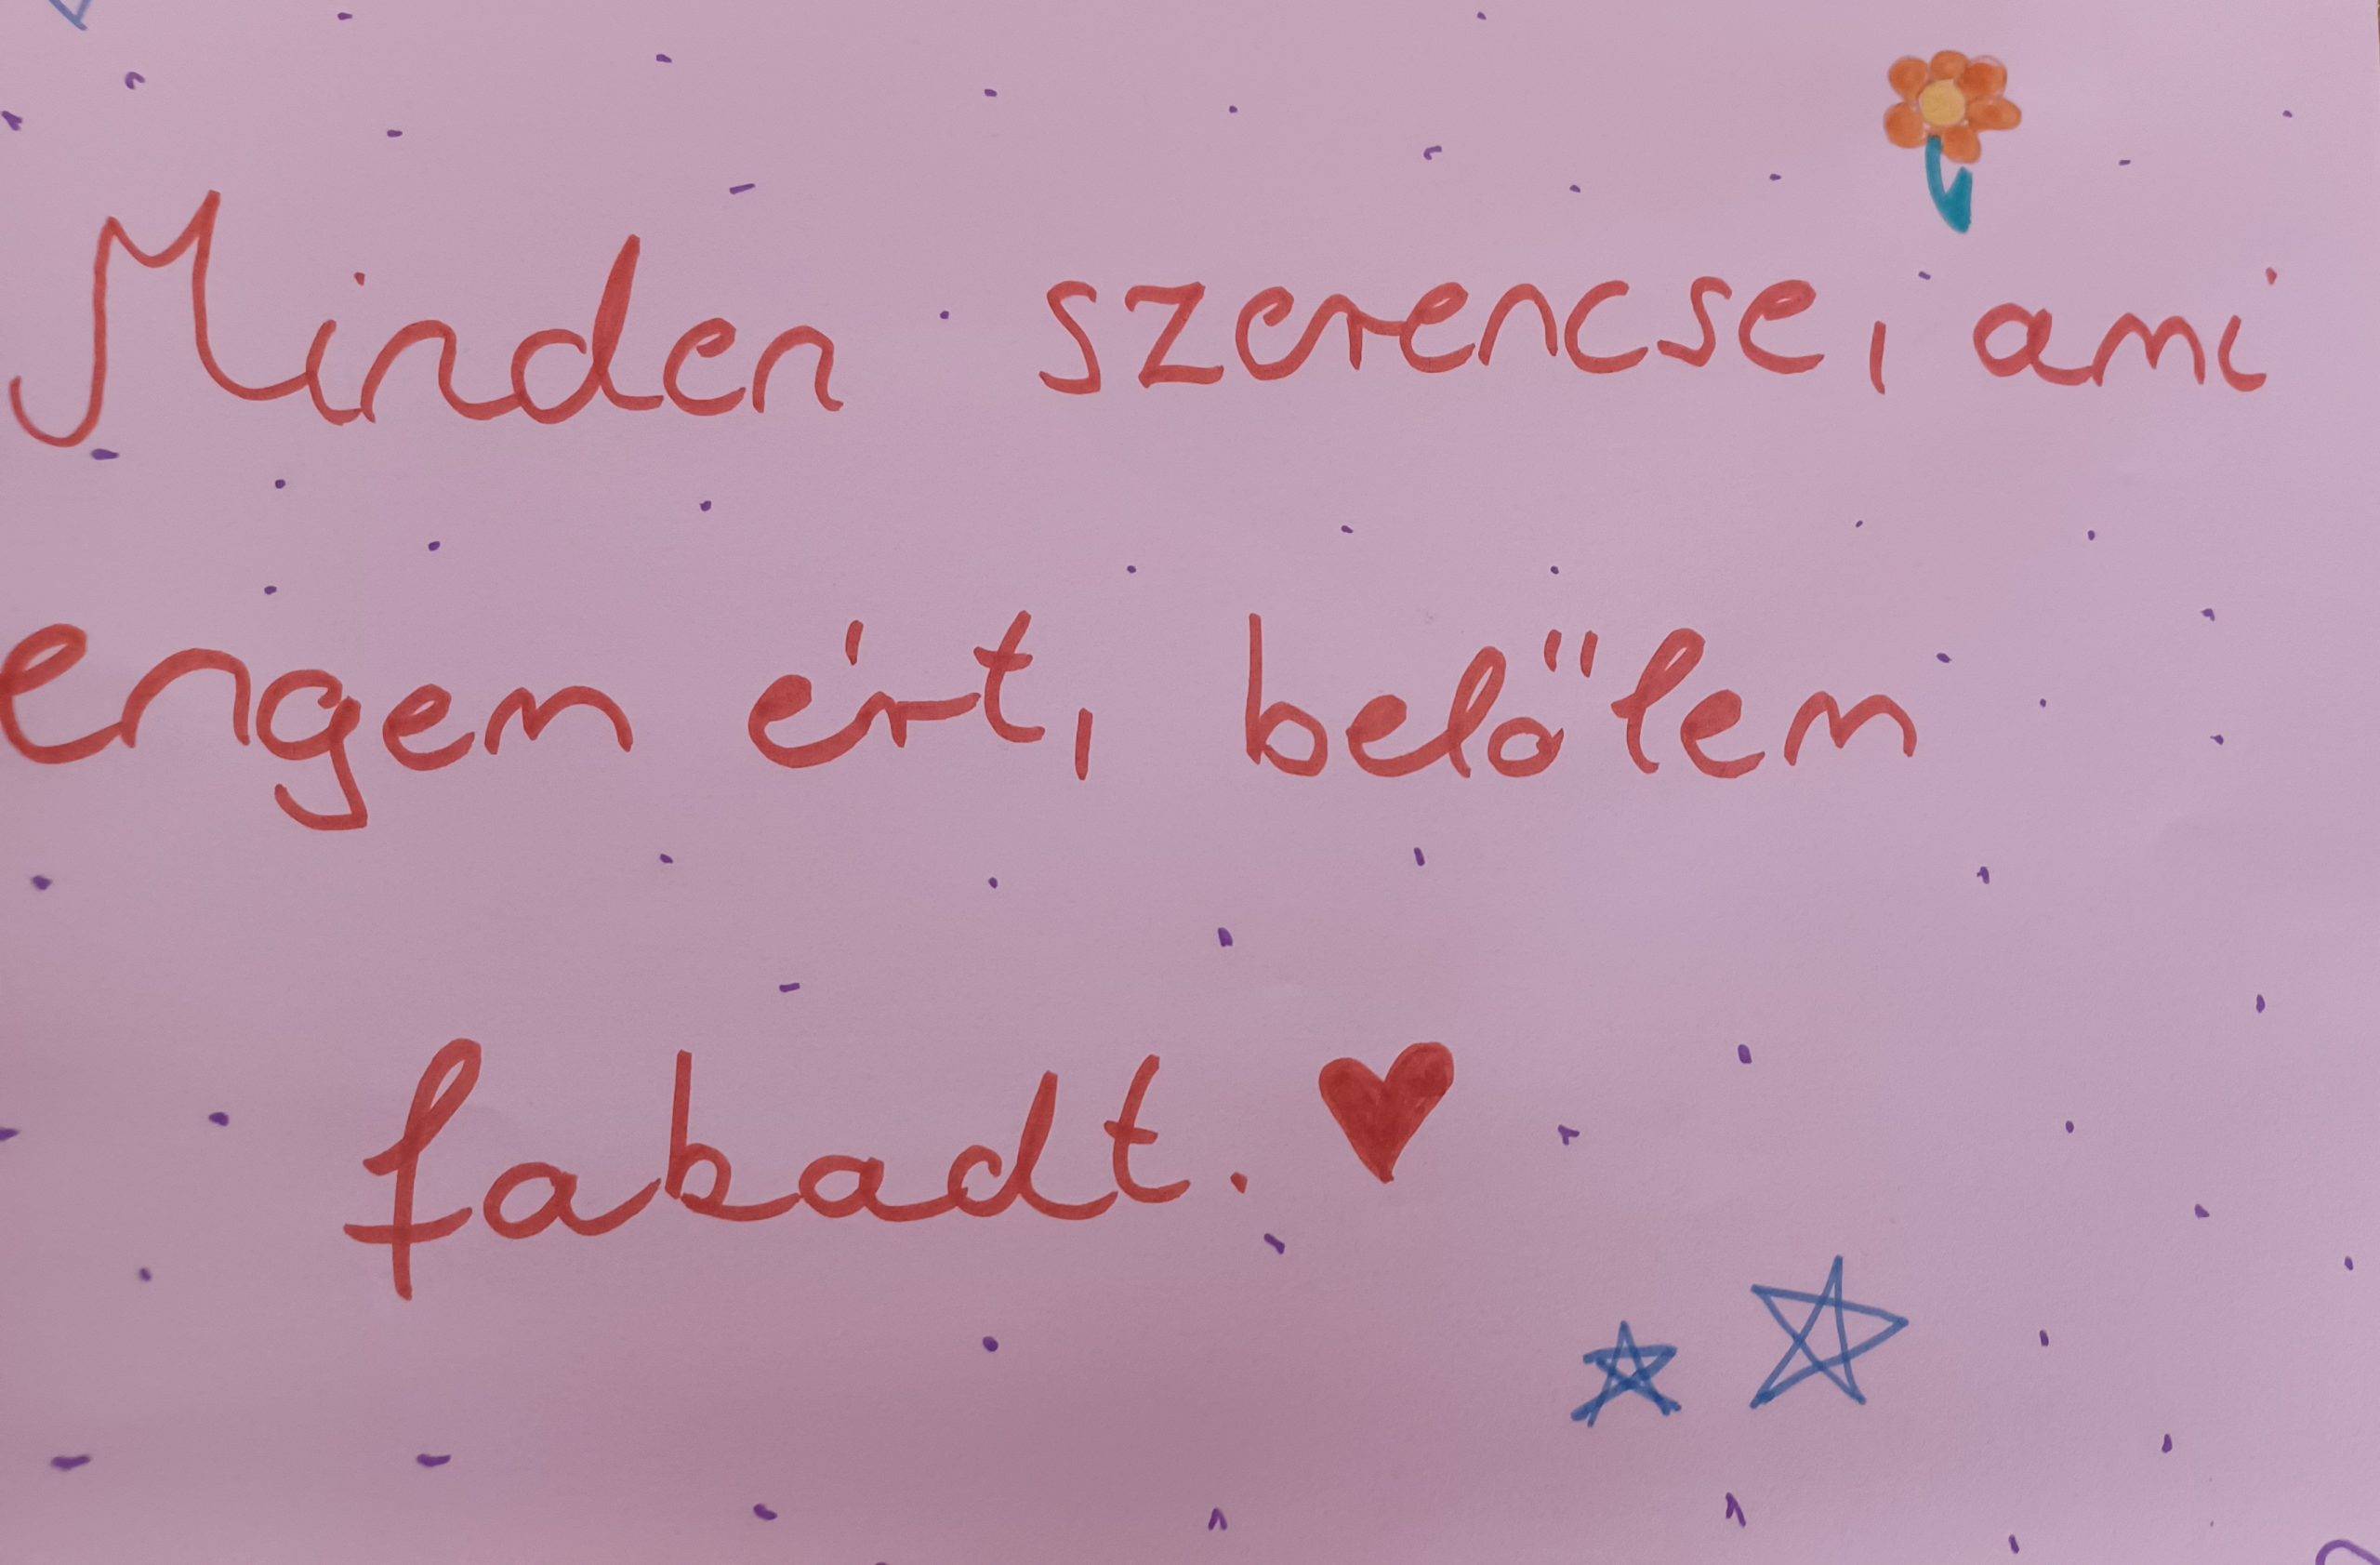 Minden szerencse, ami
engem ért, belőlem
fakadt.